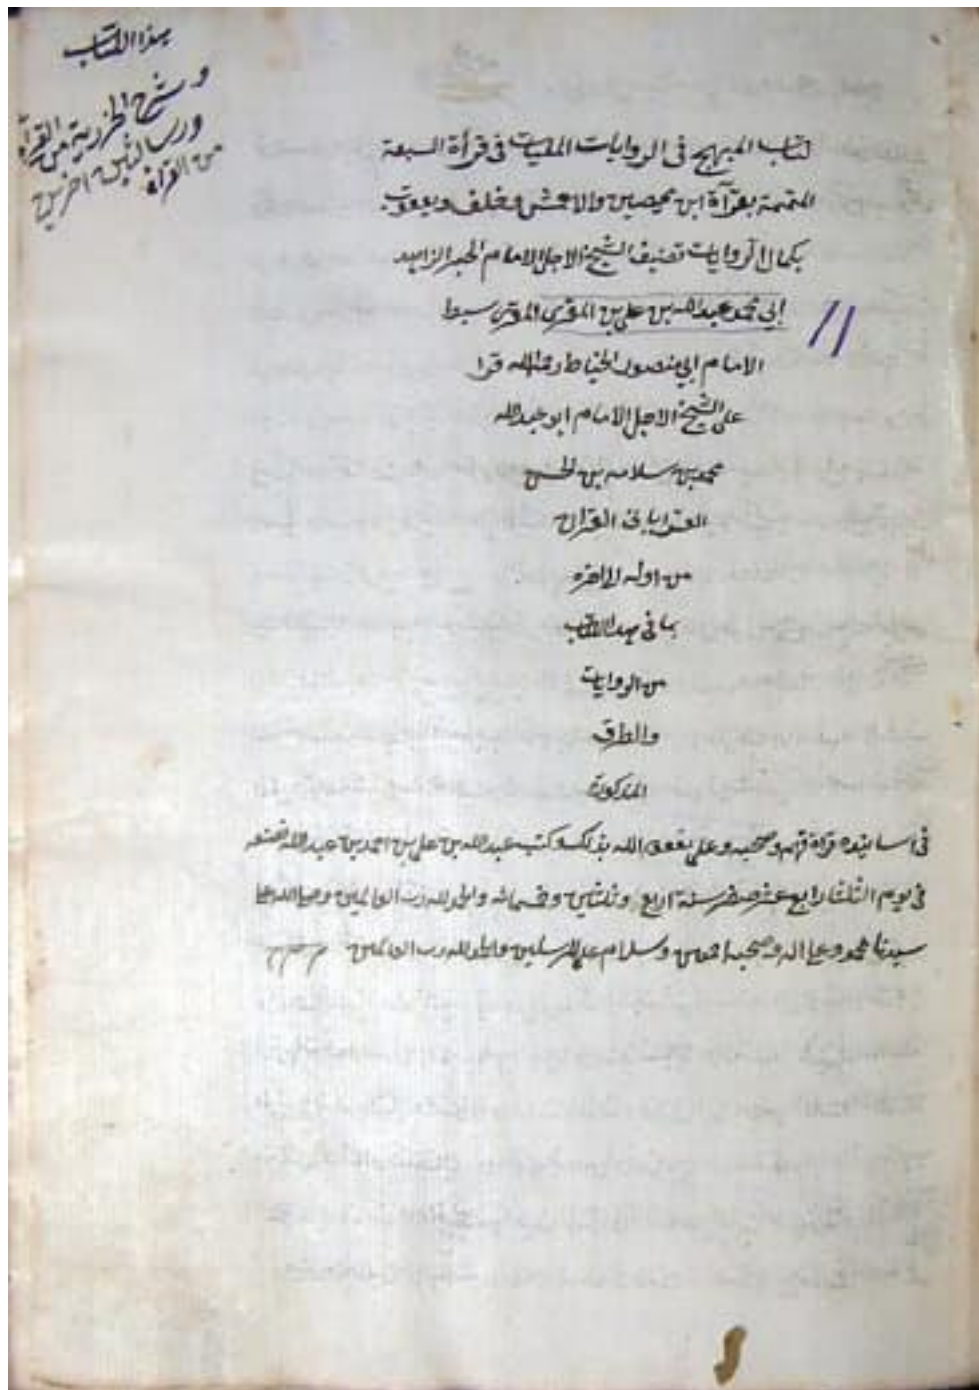 هذا الكتاب
وشرح الجزرية من القرآة
ورسالتين اخرتين
من القراة
كتاب المبهج في الروايات المليات في قرأة السبعة
المتممة بقرآة ابن محيصين والاعمش وخلف ويعقوب
بكمال الروايات تصنيف الشيخ الاجل الامام الحبر الزاهد
ابي محمد عبدالله بن علي بن المقرى المقرى سبط
الامام ابي منصور الخياط رحمه الله قرا
على الشيخ الاجل الامام ابو عبدالله
محمد بن سلامه بن الحسن
القران
من اوله الى اخره
بما في هذا الكتاب
من الروايات
والطرق
المذكورة
في اسانيده قراة فهم وصحبه وعلى الله بذلك وكتب عبدالله بن علي بن احمد بن عبدالله
في يوم الثلثا رابع عشر صفر سنة اربع وثلثين وخمسمائه والحمد لله رب العالمين وصلى الله على
سيدنا محمد وعلى اله وصحبه اجمعين وسلام على المرسلين والحمد لله رب العالمين